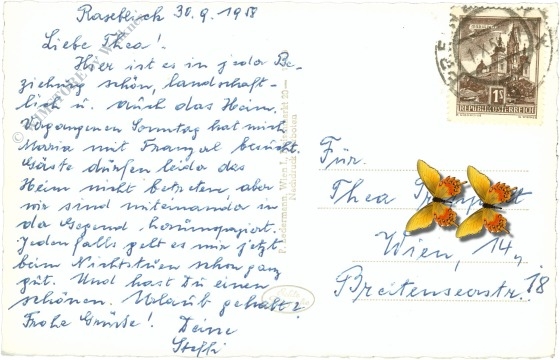 Raseblick 30.9.1958
Liebe Thea!
Hier ist es in jeder Be-
ziehung schön, landschaft-
lich u. auch das Heim.
Vorgangenen Sonntag hat mich
Maria mit Franzal besucht.
Gäste dürfen leider das
Heim nicht betreten aber
wir sind miteinander in
der Gegend herumspaziert.
Jedenfalls geht es mir jetzt
beim Nichtstuen schon ganz
gut. Und hast Du einen
schönen Urlaub gehabt?
Frohe Grüsse! Deine
Steffi
P. Ledermann, Wien I.,
Nachdruck verboten
1S
REPUBLIK ÖSTERREICH
Für
Thea
Wien, 14.,
Breitenseerstr. 18